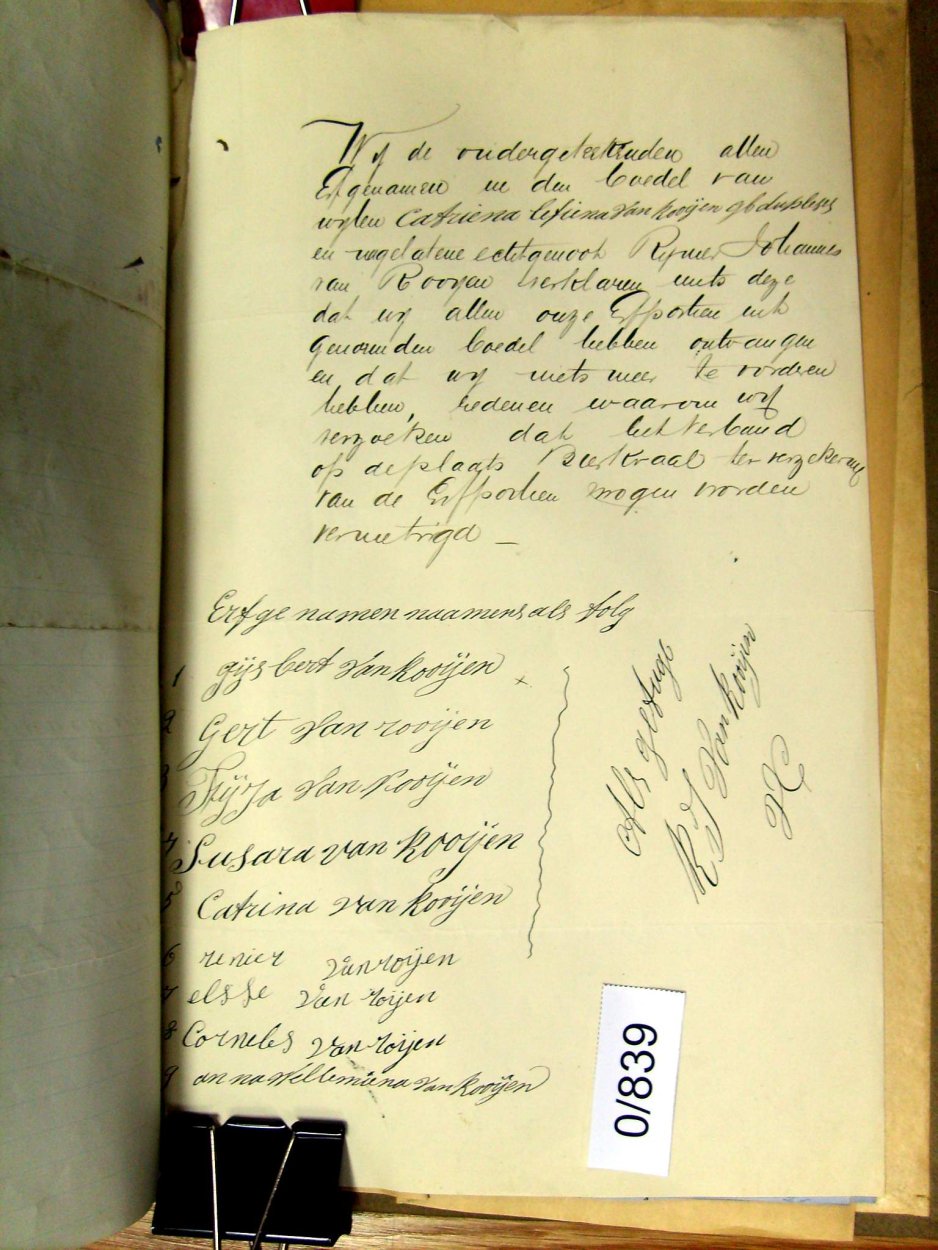 Wij de ondergeteekenden allen
Erfgenamen in den boedel van
wylen Catriena lefiena Van Rooÿen gb duplesis
en nagelatene echtgenoot Rynier Johannes
van Rooyen verklaren mits deze
dat wy allen onze Erfportien uit
Genoemden boedel hebben ontvangen
en dat wy niets meer te vorderen
hebben, redenen waarom wij
verzoeken dat het verband
op de plaats Bierkraal ter verzekering
van de Erfportien mogen worden
vernietrigd —
Erfge namen naamens als folg
1 gijsbert Van Rooÿen x
2 Gert Van rooijen
3 Van Rooÿen
4 Susara van Rooÿen
5 Catrina van Rooÿen
6 renier van roijen
7 elsse van roijen
8 Cornelis van roijen
9 anna Willemiena van Rooÿen
Als getuge
R J Van Rooÿen
0/839